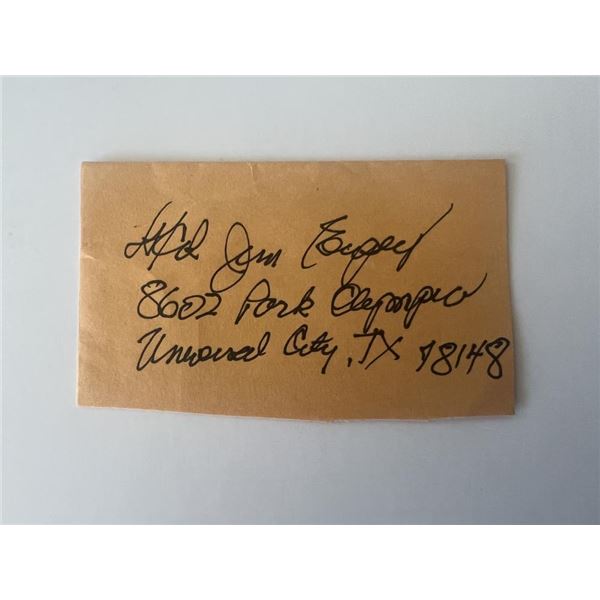 Jim
8602 Park Olympia
Universal City, TX 78148